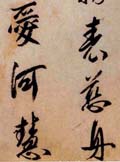 表慈舟
愛河慧